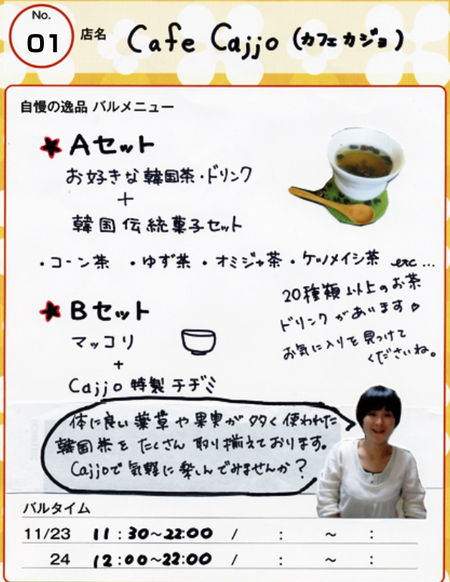 No.
01 店名 Cafe Cajjo (カフェカジョ)
自慢の逸品 バルメニュー
★ Aセット
お好きな韓国茶・ドリンク
+
韓国伝統菓子セット
・コーン茶 ・ゆず茶 ・オミジャ茶 ・ケツメイシ茶 etc...
20種類以上のお茶
ドリンクがあります♡
お気に入りを見つけて
くださいね。
★ Bセット
マッコリ
+
Cajjo 特製チヂミ
体に良い薬草や果実が多く使われた
韓国茶をたくさん取り揃えております。
Cajjoで気軽に楽しんでみませんか?
バルタイム
11/23 11:30~22:00 / : ~ :
24 12:00~22:00 / : ~ :